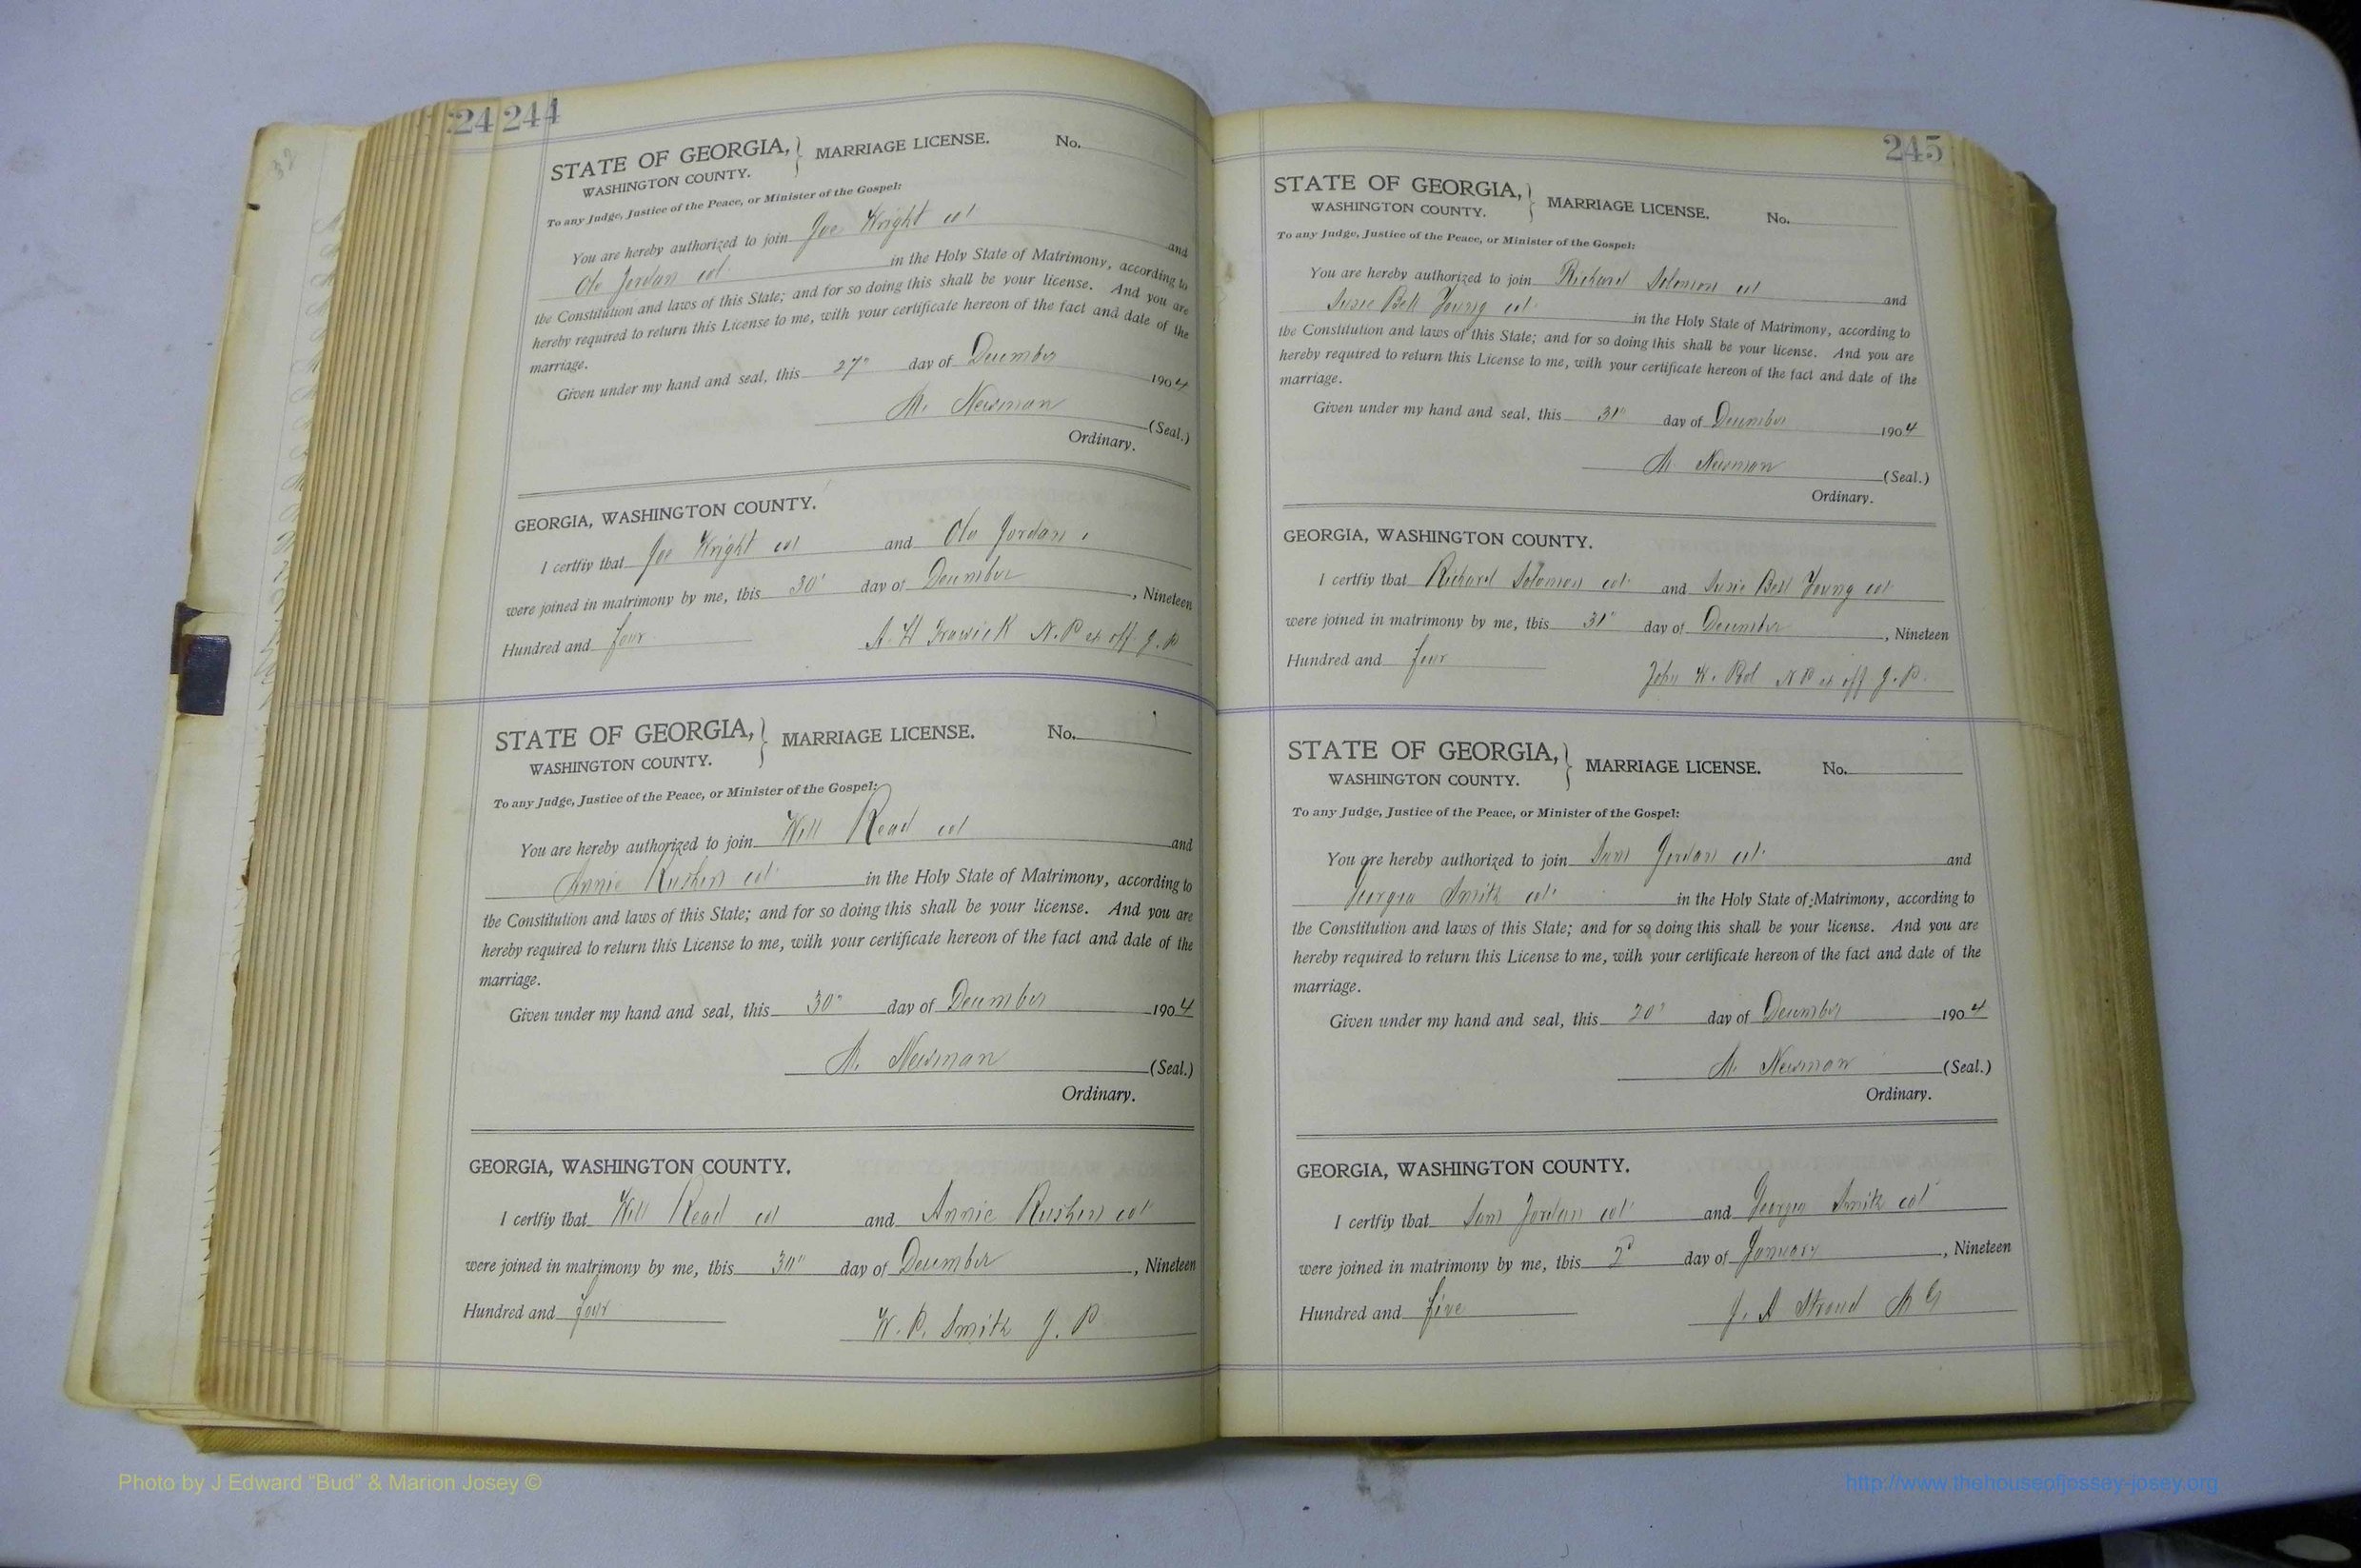 24 244
STATE OF GEORGIA, } MARRIAGE LICENSE. No.
WASHINGTON COUNTY.
To any Judge, Justice of the Peace, or Minister of the Gospel:
You are hereby authorized to join Joe Wright col and
Ola Jordan col in the Holy State of Matrimony, according to
the Constitution and laws of this State; and for so doing this shall be your license. And you are
hereby required to return this License to me, with your certificate hereon of the fact and date of the
marriage.
Given under my hand and seal, this 27" day of December 1904
M. Newman (Seal.)
Ordinary.
GEORGIA, WASHINGTON COUNTY.
I certfiy that Joe Wright col and Ola Jordan
were joined in matrimony by me, this 30" day of December, Nineteen
Hundred and four A. H Trawick N. P ex off. J. P
STATE OF GEORGIA, } MARRIAGE LICENSE. No.
WASHINGTON COUNTY.
To any Judge, Justice of the Peace, or Minister of the Gospel:
You are hereby authorized to join Will Read col and
Annie Rushen col in the Holy State of Matrimony, according to
the Constitution and laws of this State; and for so doing this shall be your license. And you are
hereby required to return this License to me, with your certificate hereon of the fact and date of the
marriage.
Given under my hand and seal, this 30" day of December 1904
M. Newman (Seal.)
Ordinary.
GEORGIA, WASHINGTON COUNTY.
I certfiy that Will Read col and Annie Rushen col
were joined in matrimony by me, this 30" day of December, Nineteen
Hundred and four W. P. Smith J. P
245
STATE OF GEORGIA, } MARRIAGE LICENSE. No.
WASHINGTON COUNTY.
To any Judge, Justice of the Peace, or Minister of the Gospel:
You are hereby authorized to join Richard Solomon col and
Susie Bell Young col in the Holy State of Matrimony, according to
the Constitution and laws of this State; and for so doing this shall be your license. And you are
hereby required to return this License to me, with your certificate hereon of the fact and date of the
marriage.
Given under my hand and seal, this 31" day of December 1904
M. Newman (Seal.)
Ordinary.
GEORGIA, WASHINGTON COUNTY.
I certfiy that Richard Solomon col and Susie Bell Young col
were joined in matrimony by me, this 31" day of December, Nineteen
Hundred and four John W. N P ex off J. P.
STATE OF GEORGIA, } MARRIAGE LICENSE. No.
WASHINGTON COUNTY.
To any Judge, Justice of the Peace, or Minister of the Gospel:
You are hereby authorized to join Sam Jordan col and
Georgia Smith col in the Holy State of Matrimony, according to
the Constitution and laws of this State; and for so doing this shall be your license. And you are
hereby required to return this License to me, with your certificate hereon of the fact and date of the
marriage.
Given under my hand and seal, this 20" day of December 1904
M. Newman (Seal.)
Ordinary.
GEORGIA, WASHINGTON COUNTY.
I certfiy that Sam Jordan col and Georgia Smith col
were joined in matrimony by me, this 2d day of January, Nineteen
Hundred and five J. A Stroud M G
Photo by J Edward "Bud" & Marion Josey ©
http://www.thehouseofjossey-josey.org